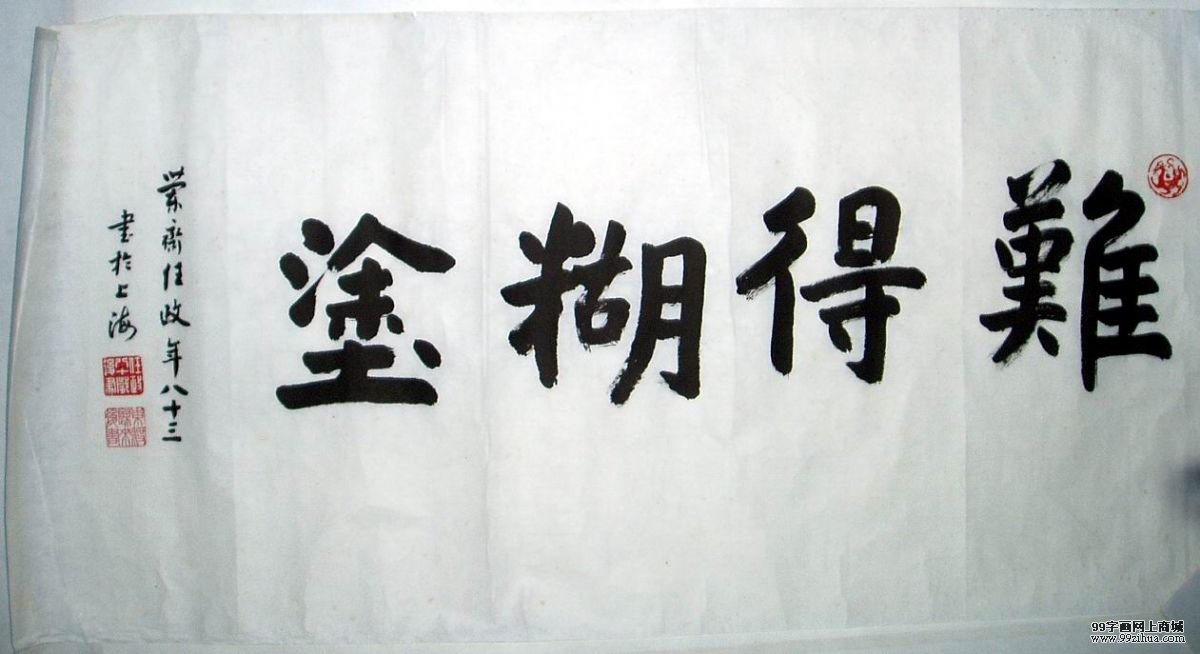 難得糊塗
蘭齋任政年八十三
書於上海
99字画网上商城
www.99zihua.com